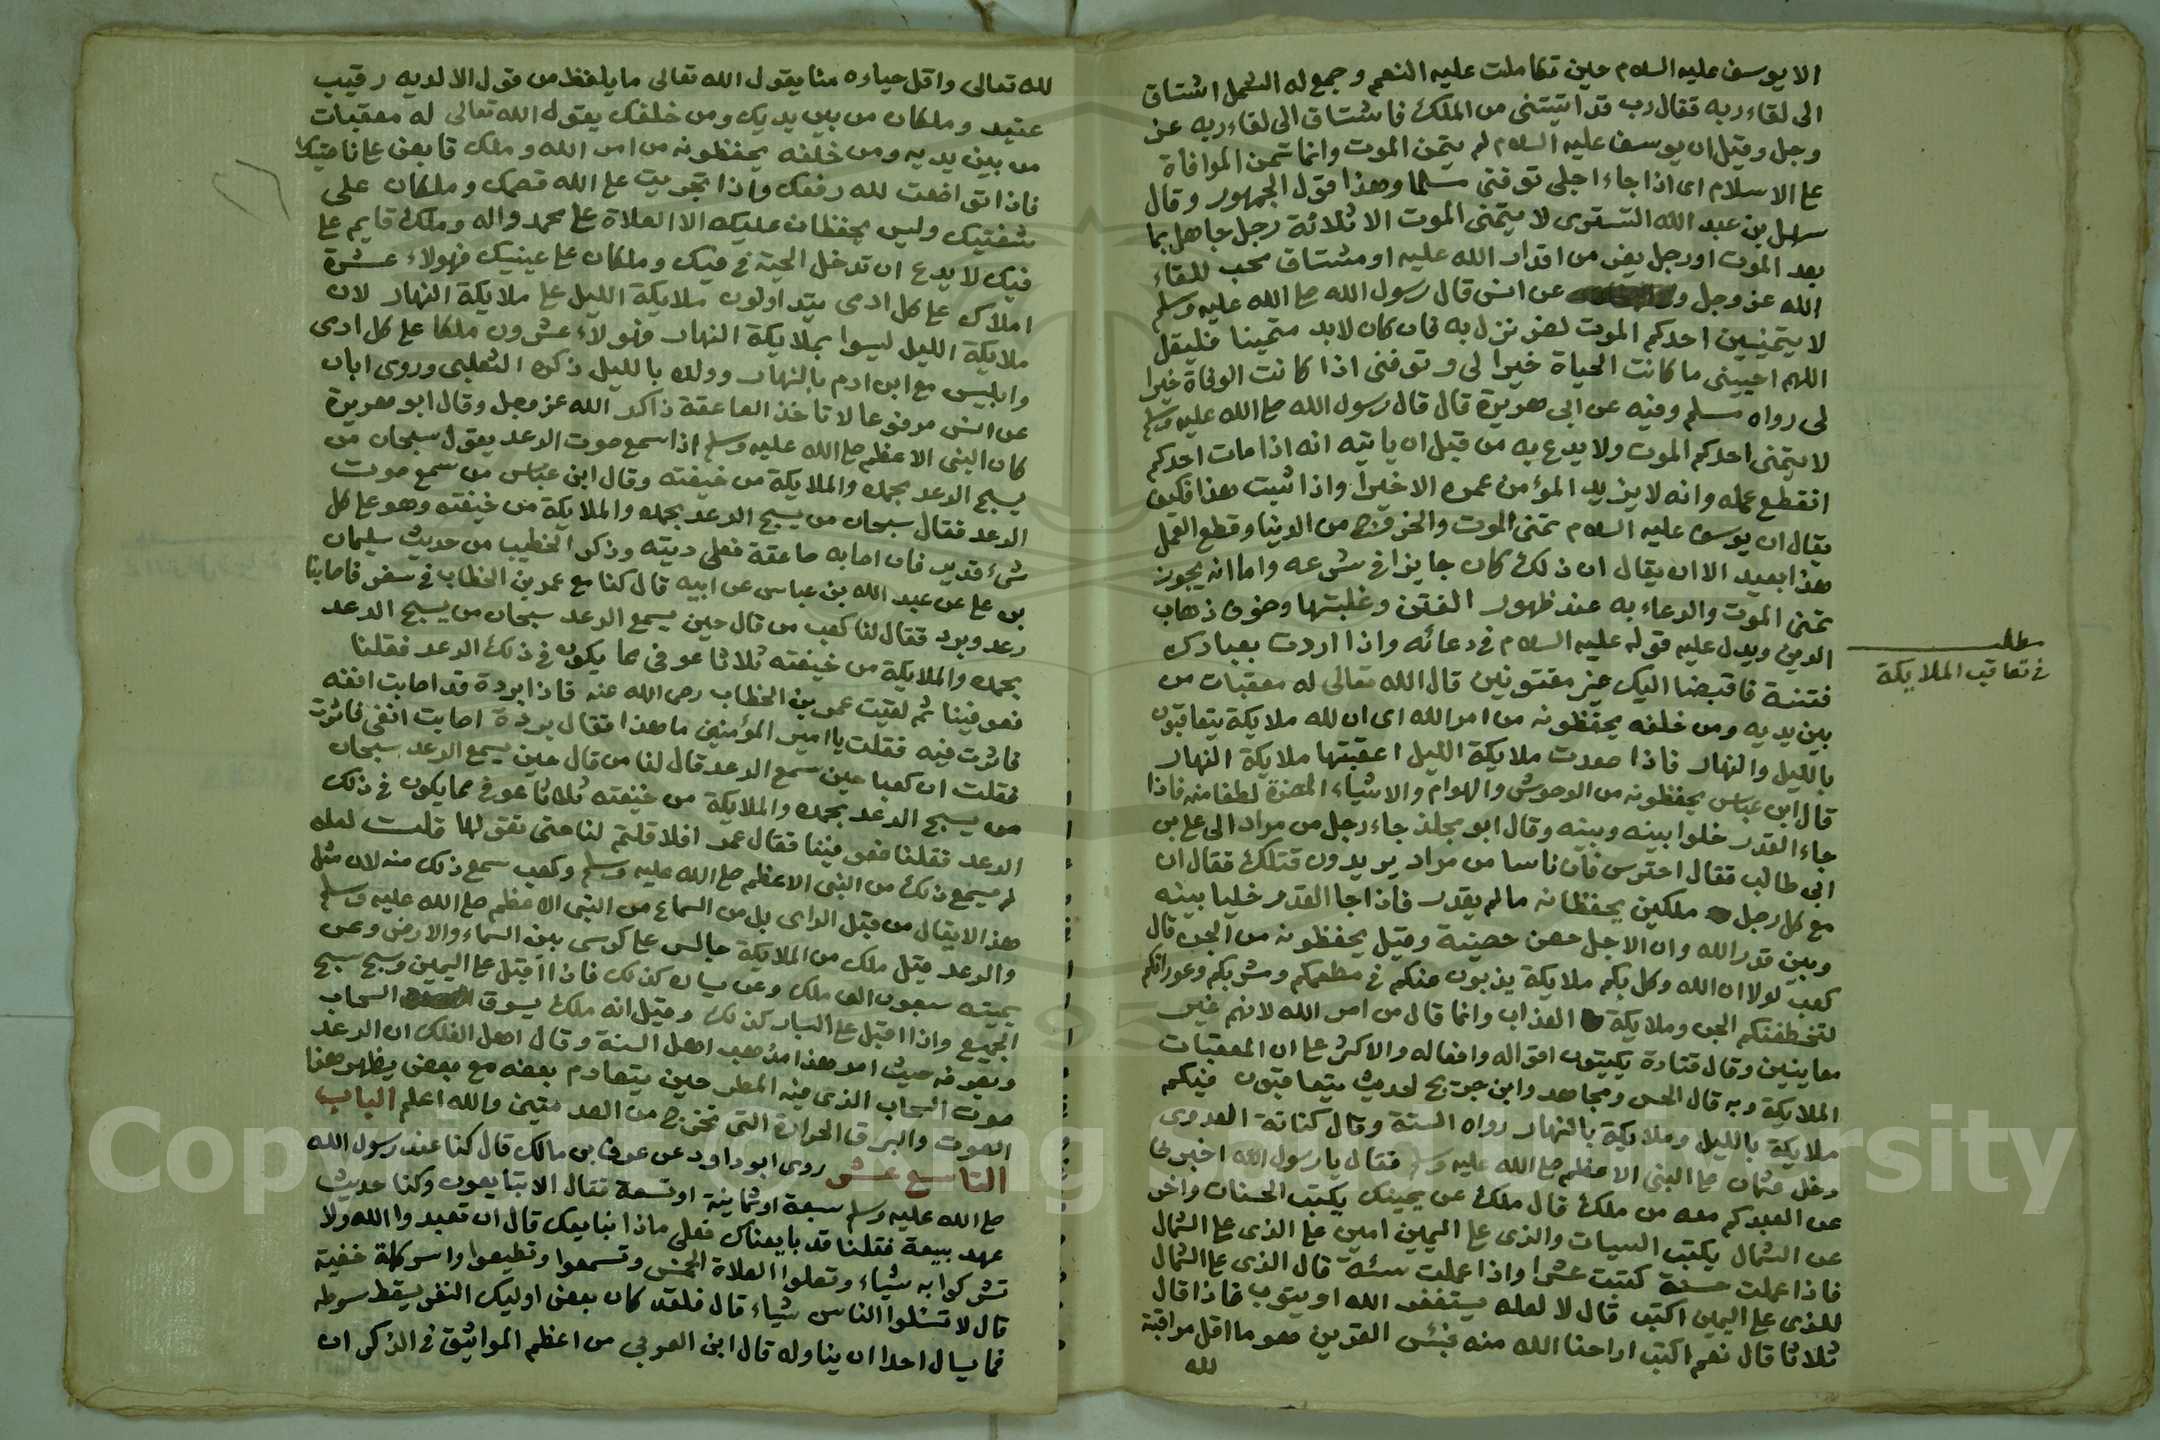 الا يوسف عليه السلام حين تكاملت عليه النعم وجمع له الشمل اشتاق
الى لقاء ربه فقال رب قد اتيتنى من الملك فاشتاق الى لقاء ربه عز
وجل وقيل ان يوسف عليه السلام لم يتمن الموت وانما تمن الموافاة
على الاسلام اى اذا جاء اجلى توفنى مسلما وهذا قول الجمهور وقال
سهل بن عبد الله التسترى لا يتمنى الموت الا ثلاثة رجل جاهل بما
بعد الموت او رجل يفر من اقدار الله عليه او مشتاق محب للقاء
الله عز وجل و عن انس قال رسول الله صلى الله عليه وسلم
لا يتمنين احدكم الموت لضر نزل به فان كان لابد متمينا فليقل
اللهم احيينى ما كانت الحياة خيرا لى وتوفنى اذا كانت الوفاة خيرا
لى رواه مسلم وفيه عن ابى هريرة قال قال رسول الله صلى الله عليه وسلم
لا يتمنى احدكم الموت ولا يدع به من قبل ان ياتيه انه اذا مات احدكم
انقطع عمله وانه لا يزيد المؤمن عمره الا خيرا واذا ثبت هذا فكيف
يقال ان يوسف عليه السلام تمنى الموت والخروج من الدنيا وقطع العمل
هذا بعيد الا ان يقال ان ذلك كان جايزا فى شرعه واما انه يجوز
تمنى الموت والدعاء به عند ظهور الفتن وغلبتها وخوف ذهاب
الدين ويدل عليه قوله عليه السلام فى دعائه واذا اردت بعبادك
فتنة فاقبضنا اليك غير مفتونين قال الله تعالى له معقبات من
بين يديه ومن خلفه يحفظونه من امر الله اى ان لله ملايكة يتعاقبون
بالليل والنهار فاذا صعدت ملايكة الليل اعقبتها ملايكة النهار
قال ابن عباس يحفظونه من الوحوش والهوام والاشياء المضرة لطفا منه فاذا
جاء القدر خلوا بينه وبينه وقال ابو مجلز جاء رجل من مراد الى على بن
ابى طالب فقال احترس فان ناسا من مراد يريدون قتلك فقال ان
مع كل رجل ملكين يحفظانه ما لم يقدر فاذا جا القدر خليا بينه
وبين قدر الله وان الاجل حصن حصينة وقيل يحفظونه من الجن قال
كعب لولا ان الله وكل بكم ملايكة يذبون عنكم فى مطعمكم ومشربكم وعوراتكم
لتخطفنكم الجن وملايكة العذاب وانما قال من امر الله لانهم غير
معاينين وقال قتادة يكتبون اقواله وافعاله والاكثر على ان المعقبات
الملايكة وبه قال الحسن ومجاهد وابن جريج لحديث يتعاقبون فيكم
ملايكة بالليل وملايكة بالنهار رواه الستة وقال كنانة العدوى
دخل عثمان على النبى الاعظم صلى الله عليه وسلم فقال يا رسول الله اخبرنى
عن العبد كم معه من ملك قال ملك عن يمينك يكتب الحسنات واخر
عن الشمال يكتب السيات والذى على اليمين امين على الذى على الشمال
فاذا عملت حسنة كتبت عشرا واذا عملت سئة قال الذى على الشمال
للذى على اليمين اكتب قال لا لعله يستغفر الله او يتوب فاذا قال
ثلاثا قال نعم اكتب اراحنا الله منه فبئس القرين هو ما اقل مراقبة
لله
مطلب
فى تعاقب الملايكة
لله تعالى واقل حياءه منا يقول الله تعالى ما يلفظ من قول الا لديه رقيب
عتيد وملكان من بين يديك ومن خلفك يقول الله تعالى له معقبات
من بين يديه ومن خلفه يحفظونه من امر الله وملك قابض على ناصيتك
فاذا تواضعت لله رفعك واذا تجبرت على الله قصمك وملكان على
شفتيك وليس يحفظان عليك الا الصلاة على محمد واله وملك قايم على
فيك لا يدع ان تدخل الحية فى فيك وملكان على عينيك فهولاء عشرة
املاك على كل ادمى يتداولون ملايكة الليل على ملايكة النهار لان
ملايكة الليل ليسوا بملايكة النهار فهولاء عشرون ملكا على كل ادمى
وابليس مع ابن ادم بالنهار وولده بالليل ذكره الثعلبى وروى ابان
عن انس مرفوعا لا تاخذ الصاعقة ذاكر الله عز وجل وقال ابو هريرة
كان النبى الاعظم صلى الله عليه وسلم اذا سمع صوت الرعد يقول سبحان من
يسبح الرعد بحمده والملايكة من خيفته وقال ابن عباس من سمع صوت
الرعد فقال سبحان من يسبح الرعد بحمده والملايكة من خيفته وهو على كل
شىء قدير فان اصابه صاعقة فعلى ديته وذكر الخطيب من حديث سليمان
بن على عن عبد الله بن عباس عن ابيه قال كنا مع عمر بن الخطاب فى سفر فاصابنا
رعد وبرد فقال لنا كعب من قال حين يسمع الرعد سبحان من يسبح الرعد
بحمده والملايكة من خيفته ثلاثا عوفى مما يكون فى ذلك الرعد فقلنا
فعوفينا ثم لقيت عمر بن الخطاب رضى الله عنه فاذا بردة قد اصابت انفه
فاثرت فيه فقلت يا امير المؤمنين ما هذا فقال بردة اصابت انفى فاثرت
فقلت ان كعبا حين سمع الرعد قال لنا من قال حين يسمع الرعد سبحان
من يسبح الرعد بحمده والملايكة من خيفته ثلاثا عوفى مما يكون فى ذلك
الرعد فقلنا فعوفينا فقال عمر افلا قلتم لنا حتى نقولها قلت لعله
لم يسمع ذلك من النبى الاعظم صلى الله عليه وسلم وكعب سمع ذلك منه لان مثل
هذا لا يقال من قبل الراى بل من السماع من النبى الاعظم صلى الله عليه وسلم
والرعد قيل ملك من الملايكة جالس على كرسى بين السماء والارض وعن
يمينه سبعون الف ملك وعن يساره كذلك فاذا اقبل على اليمين وسبح سبح
الجميع واذا اقبل على اليسار كذلك وقيل انه ملك يسوق السحاب
ويصرفه حيث امر هذا مذهب اهل السنة وقال اهل الفلك ان الرعد
صوت السحاب الذى فيه المطر حين يتصادم بعضه مع بعض يظهر هذا
الصوت والبرق الحرارة التى تخرج من الصدمتين والله اعلم الباب
التاسع عشر روى ابو داود عن عوف بن مالك قال كنا عند رسول الله
صلى الله عليه وسلم سبعة او ثمانية او تسعة فقال الا تبايعون وكنا حديث
عهد ببيعة فقلنا قد بايعناك فعلى ماذا نبايعك قال ان تعبدوا الله ولا
تشركوا به شياء وتصلوا الصلاة الخمس وتسمعوا وتطيعوا واسر كلمة خفية
قال لا تسئلوا الناس شياء قال فلقد كان بعض اوليك النفر يسقط سوطه
فما يسال احدا ان يناوله قال ابن العربي من اعظم المواثيق فى الذكر ان
Copyright © King Saud University
1957